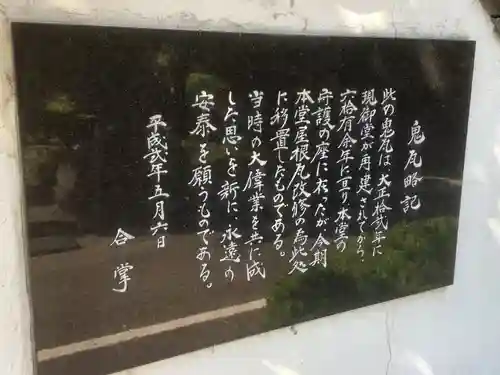 鬼瓦略記
此の鬼瓦は、大正拾弐年に
現御堂が再建されてから、
六拾有余年に亘り本堂の
守護の座に在ったが今期
本堂屋根瓦改修の為此処
に移置したものである。
当時の大偉業を共に成
した思いを新に、永遠の
安泰を願うものである。
平成弐年五月六日
合掌